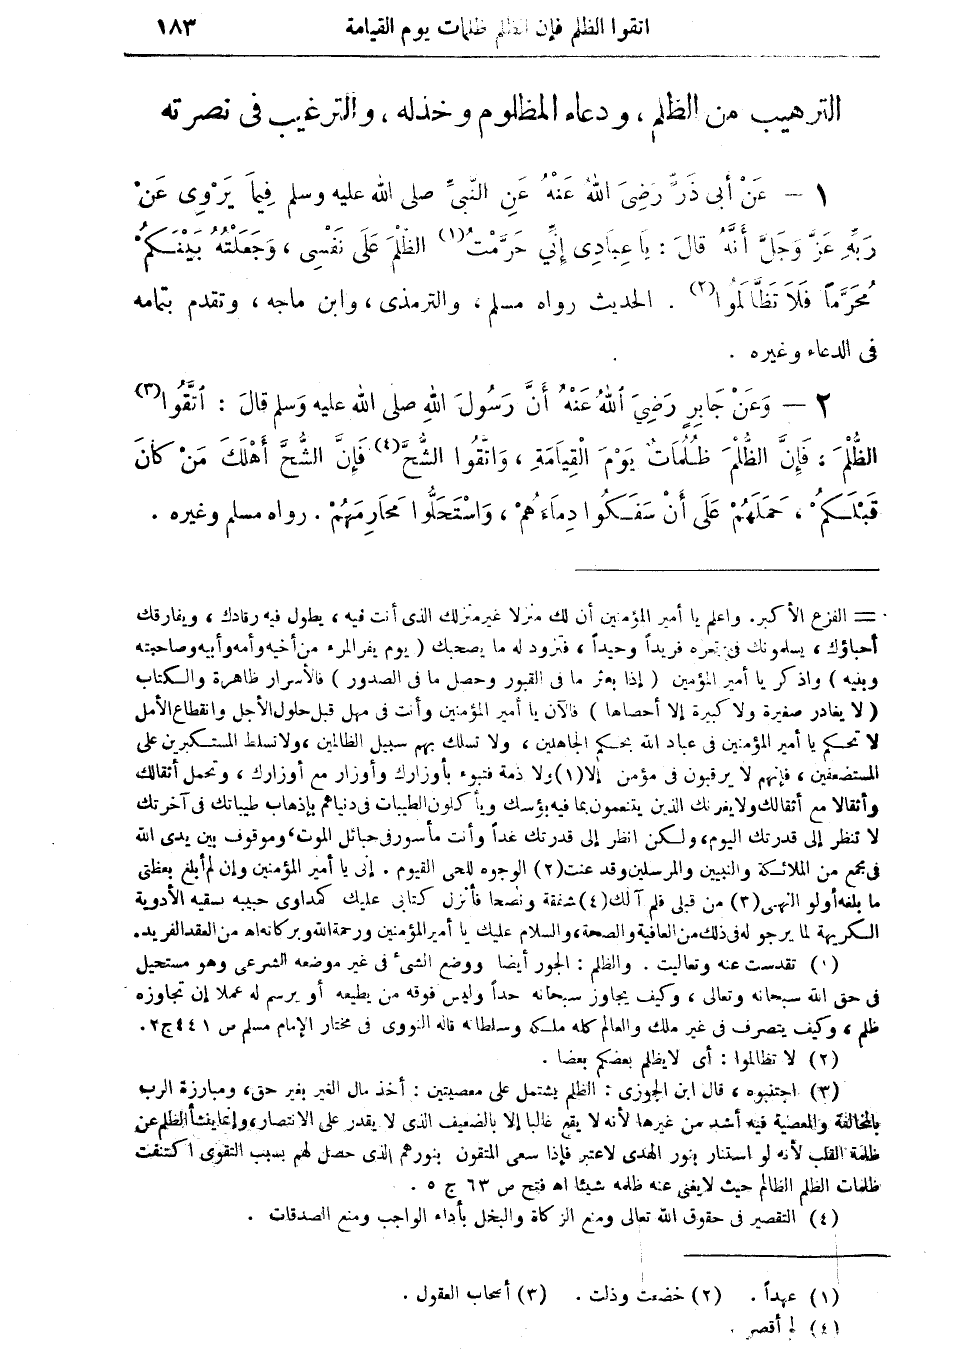 اتقوا الظلم فإن الظلم ظلمات يوم القيامة ١٨٣
الترهيب من الظلم ، ودعاء المظلوم وخذله ، والترغيب فى نصرته
١ — عَنْ أبى ذَرٍّ رَضِىَ اللهُ عَنْهُ عَنِ النَّبِىِّ صلى الله عليه وسلم فِيمَا يَرْوِى عَنْ
رَبِّهِ عَزَّ وَجَلَّ أَنَّهُ قَالَ : يَا عِبَادِى إِنِّي حَرَّمْتُ(١) الظُّلْمَ عَلَى نَفْسِى ، وَجَعَلْتُهُ بَيْنَكُمْ
مُحَرَّماً فَلَا تَظَّالَمُوا(٢) . الحديث رواه مسلم ، والترمذى ، وابن ماجه ، وتقدم بتمامه
فى الدعاء وغيره .
٢ — وَعَنْ جَابِرٍ رَضِيَ اللهُ عَنْهُ أَنَّ رَسُولَ اللهِ صلى الله عليه وسلم قالَ : اتَّقُوا(٣)
الظُّلْمَ : فَإِنَّ الظُّلْمَ ظُلُمَاتٌ يَوْمَ الْقِيَامَةِ ، وَاتَّقُوا الشُّحَّ(٤) فَإِنَّ الشُّحَّ أَهْلَكَ مَنْ كَانَ
قَبْلَكُمْ ، حَمَلَهُمْ عَلَى أَنْ سَفَكُوا دِمَاءَهُمْ ، وَاسْتَحَلُّوا مَحَارِمَهُمْ . رواه مسلم وغيره .
= الفزع الأكبر. واعلم يا أمير المؤمنين أن لك منزلا غير منزلك الذى أنت فيه ، يطول فيه رقادك ، ويفارقك
أحباؤك ، يسلمونك فى قعره فريداً وحيداً ، فتزود له ما يصحبك ( يوم يفر المرء من أخيه وأمه وأبيه وصاحبته
وبنيه ) واذكر يا أمير المؤمنين ( إذا بعثر ما فى القبور وحصل ما فى الصدور ) فالأسرار ظاهرة والكتاب
( لا يغادر صغيرة ولا كبيرة إلا أحصاها ) فالآن يا أمير المؤمنين وأنت فى مهل قبل حلول الأجل وانقطاع الأمل
لا تحكم يا أمير المؤمنين فى عباد الله بحكم الجاهلين ، ولا تسلك بهم سبيل الظالمين ، ولا تسلط المستكبرين على
المستضعفين ، فإنهم لا يرقبون فى مؤمن إلا(١) ولا ذمة فتبوء بأوزارك وأوزار مع أوزارك ، وتحمل أثقالك
وأثقالا مع أثقالك ولا يغرنك الذين يتنعمون بما فيه بؤسك ويأكلون الطيبات فى دنياهم بإذهاب طيباتك فى آخرتك
لا تنظر إلى قدرتك اليوم ، ولكن انظر إلى قدرتك غداً وأنت مأسور فى حبائل الموت ، وموقوف بين يدى الله
فى مجمع من الملائكة والنبيين والمرسلين وقد عنت(٢) الوجوه للحى القيوم . إنى يا أمير المؤمنين وإن لم أبلغ بعظتى
ما بلغه أولو النهى(٣) من قبلى فلم آلك(٤) شفقة ونصحا فأنزل كتابى عليك كمداوى حبيبه يسقيه الأدوية
الكريهة لما يرجو له فى ذلك من العافية والصحة ، والسلام عليك يا أمير المؤمنين ورحمة الله وبركاته اه من العقد الفريد.
(١) تقدست عنه وتعاليت . والظلم : الجور أيضا ووضع الشىء فى غير موضعه الشرعى وهو مستحيل
فى حق الله سبحانه وتعالى ، وكيف يجاوز سبحانه حداً وليس فوقه من يطيعه أو يرسم له عملا إن تجاوزه
ظلم ، وكيف يتصرف فى غير ملك والعالم كله ملكه وسلطانه قاله النووى فى مختار الإمام مسلم ص ٤٤١ ج ٢.
(٢) لا تظالموا : أى لا يظلم بعضكم بعضا .
(٣) اجتنبوه ، قال ابن الجوزى : الظلم يشتمل على معصيتين : أخذ مال الغير بغير حق ، ومبارزة الرب
بالمخالفة والمعصية فيه أشد من غيرها لأنه لا يقع غالبا إلا بالضعيف الذى لا يقدر على الانتصار ، وإنما ينشأ الظلم عن
ظلمة القلب لأنه لو استنار بنور الهدى لاعتبر فإذا سعى المتقون بنورهم الذى حصل لهم بسبب التقوى اكتنفت
ظلمات الظلم الظالم حيث لا يغنى عنه ظلمه شيئا اه فتح ص ٦٣ ج ٥ .
(٤) التقصير فى حقوق الله تعالى ومنع الزكاة والبخل بأداء الواجب ومنع الصدقات .
(١) عهداً . (٢) خضعت وذلت . (٣) أصحاب العقول .
(٤) لم أقصر .